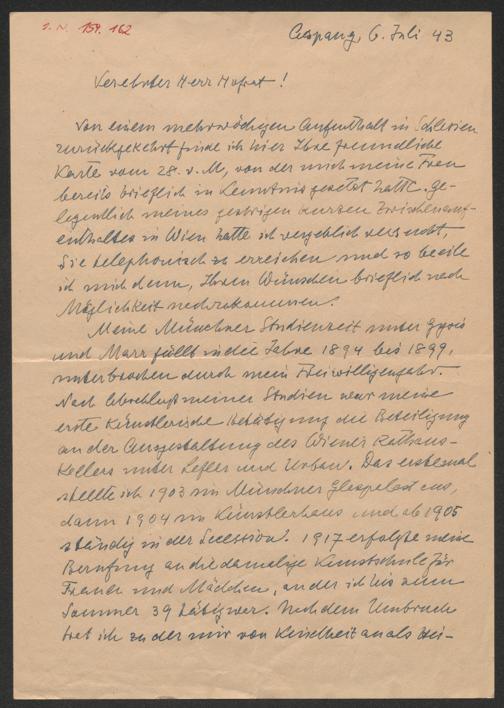 I. N. 159.162
Aspang, 6. Juli 43
Verehrter Herr Hofrat!
Von einem mehrwöchigen Aufenthalt in Schlesien
zurückgekehrt finde ich hier Ihre freundliche
Karte vom 28. v. M, von der mich meine Frau
bereits brieflich in Kenntnis gesetzt hatte. Ge-
legentlich meines gestrigen kurzen Zwischenauf-
enthaltes in Wien hatte ich vergeblich versucht,
Sie telephonisch zu erreichen und so beeile
ich mich denn, Ihren Wünschen brieflich nach
Möglichkeit nachzukommen.
Meine Münchner Studienzeit unter Gysis
und Marr fällt in die Jahre 1894 bis 1899,
unterbrochen durch mein Freiwilligenjahr.
Nach Abschluß meiner Studien war meine
erste künstlerische Betätigung die Beteiligung
an der Ausgestaltung des Wiener Rathaus-
kellers unter Lefler und Urban. Das erstemal
stellte ich 1903 im Münchner Glaspalast aus,
dann 1904 im Künstlerhaus und ab 1905
ständig in der Secession. 1917 erfolgte meine
Berufung an die damalige Kunstschule für
Frauen und Mädchen, an der ich bis zum
Sommer 39 tätig war. Nach dem Umbruch
trat ich zu der mir von Kindheit an als